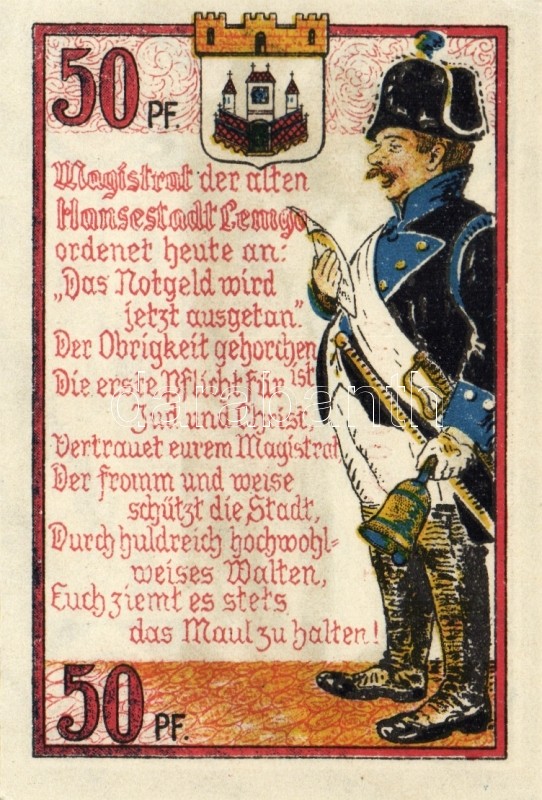 50 PF.
Magistrat der alten
Hansestadt Lemgo
ordenet heute an:
„Das Notgeld wird
jetzt ausgetan.”
Der Obrigkeit gehorchen
ist
Die erste Pflicht für
Jud und Christ,
Vertrauet eurem Magistrat
Der fromm und weise
schützt die Stadt,
Durch huldreich hochwohl-
weises Walten,
Euch ziemt es stets
das Maul zu halten!
50 PF.
darabanth